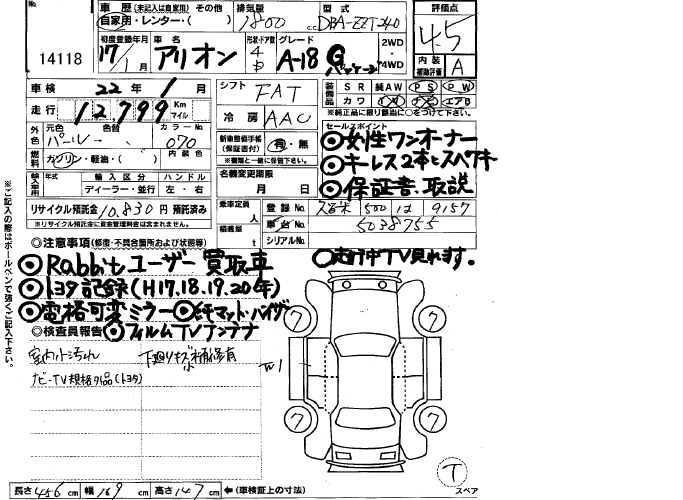 No.
14118
車歴 (未記入は自家用) その他
自家用・レンター・( )
排気量
1800 cc
型式
DBA-ZZT240
評価点
4.5
初度登録年月
17/1月
車名
アリオン
形状・ドア数
4
D
グレード
A-18 G
パッケージ
2WD
・
4WD
内装
補助評価
A
車検 22年 1月
シフト
FAT
装備品
SR 純AW PS PW
カワ ナビ TV エアB
※純正品に限り該当に○をつけて下さい。
走行 12,799 Km
マイル
冷房
AAC
外色
元色 色替
パール
カラーNo.
070
燃料
ガソリン・軽油・( )
内装色
新車整備手帳
(保証書付)
有・無
※書類と一緒に保管下さい。
セールスポイント
◎女性ワンオーナー
◎キーレス2本とスペアキー
◎保証書、取説
輸入車用
年式
輸入区分
ディーラー・並行
ハンドル
左・右
名義変更期限
月 日
リサイクル預託金 10,830円 預託済み
※リサイクル預託金に資金管理料金は含まれません。
乗車定員
人
積載量
t
登録No.
久留米 500 は 9157
車台No.
5038755
シリアルNo.
◎注意事項(修復・不具合箇所および状態等)
◎Rabbitユーザー買取車
◎トヨタ記録(H17.18.19.20年)
◎電格可変ミラー◎純マット・バイザー
◎走行中TV見れます。
◎検査員報告
◎フィルムTVアンテナ
室内小汚れ
下廻りキズ補修有
小
ナビ・TV規格外品(トヨタ)
W1
7
7
7
7
T
スペア
長さ 456 cm 幅 169 cm 高さ 147 cm ←(車検証上の寸法)
※ご記入の際はボールペンで強くご記入下さい。